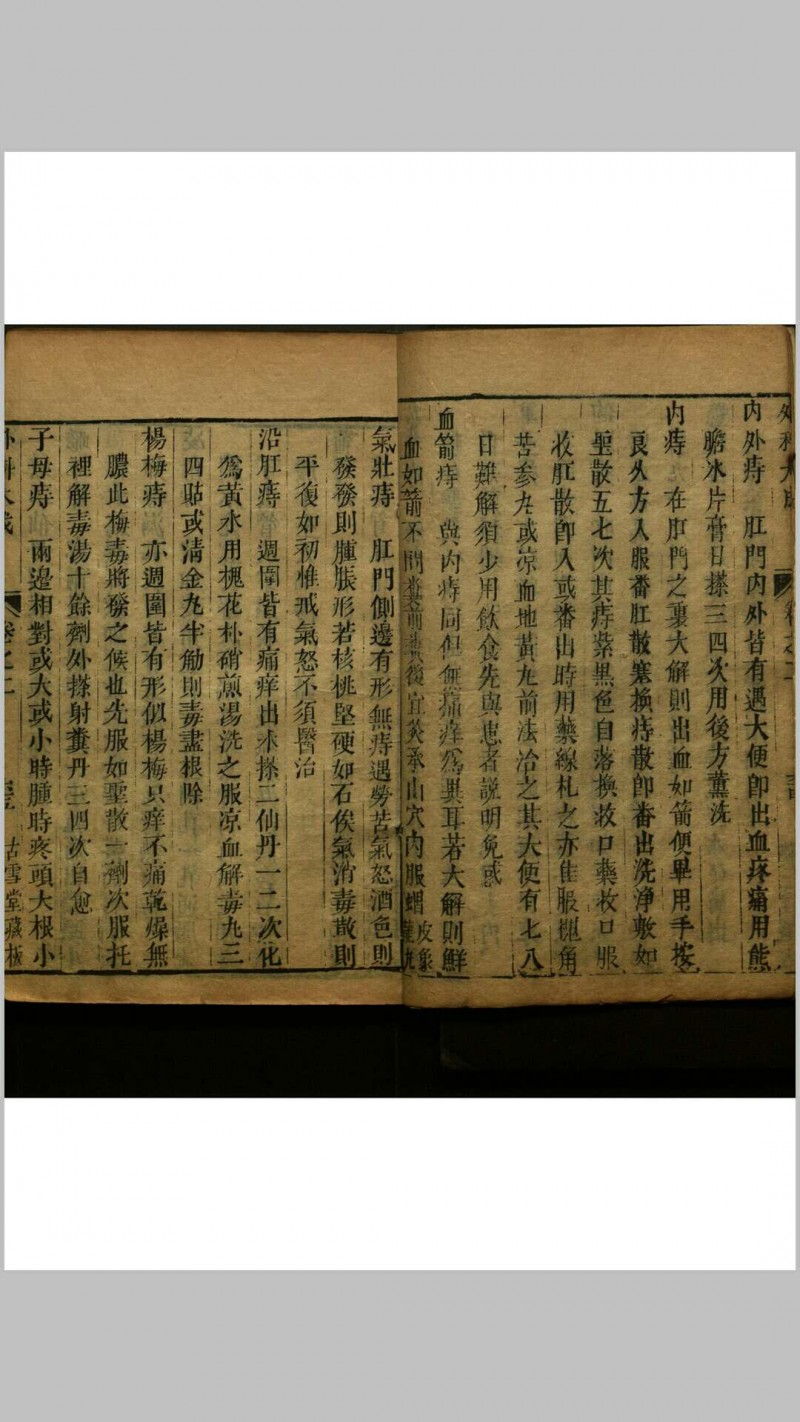 內外痔 肛門內外皆有遇大便卽出血疼痛用熊
膽冰片膏日搽三四次用後方薰洗
內痔 在肛門之裏大解則出血如箭便畢用手按
良久方入服番肛散塞換痔散卽番出洗淨敷如
聖散五七次其痔紫黑色自落換收口藥收口服
收肛散卽入或番出時用藥線札之亦佳服槐角
苦參丸或凉血地黃丸前法治之其大便有七八
日難解須少用飲食先與患者説明免惑
血箭痔 與內痔同但無痛痒爲異耳若大解則鮮
血如箭不問糞前糞後宜灸承山穴內服蝟皮象
氣壯痔 肛門側邊有形無痔遇勞苦氣怒酒色則
發發則腫脹形若核桃堅硬如石俟氣消毒散則
平復如初惟戒氣怒不須醫治
沿肛痔 週圍皆有痛痒出水搽二仙丹一二次化
爲黃水用槐花朴硝煎湯洗之服凉血解毒丸三
四貼或淸金丸半觔則毒盡根除
楊梅痔 亦週圍皆有形似楊梅只痒不痛乾燥無
膿此梅毒將發之候也先服如聖散一劑次服托
裡解毒湯十餘劑外搽射糞丹三四次自愈
子母痔 兩邊相對或大或小時腫時疼頭大根小
卷之二